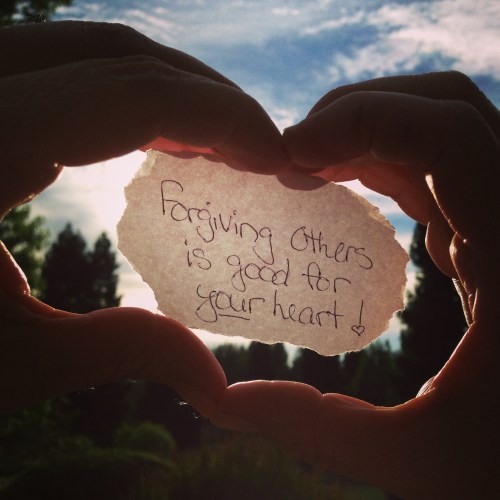 Forgiving Others
is good for
your heart!